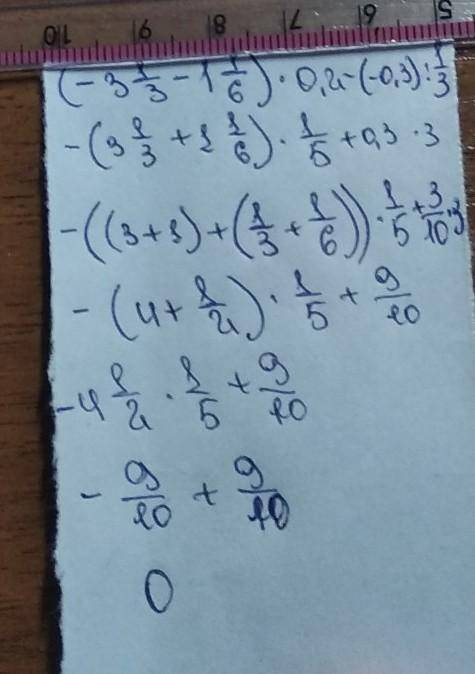 10 9 8 7 6 5
(-3 1/3 - 1 1/6) · 0,2 - (-0,3) : 1/3
-(3 1/3 + 1 1/6) · 1/5 + 0,3 · 3
-((3+1) + (1/3 + 1/6)) · 1/5 + 3/10 · 3
-(4 + 1/2) · 1/5 + 9/10
-4 1/2 · 1/5 + 9/10
- 9/10 + 9/10
0